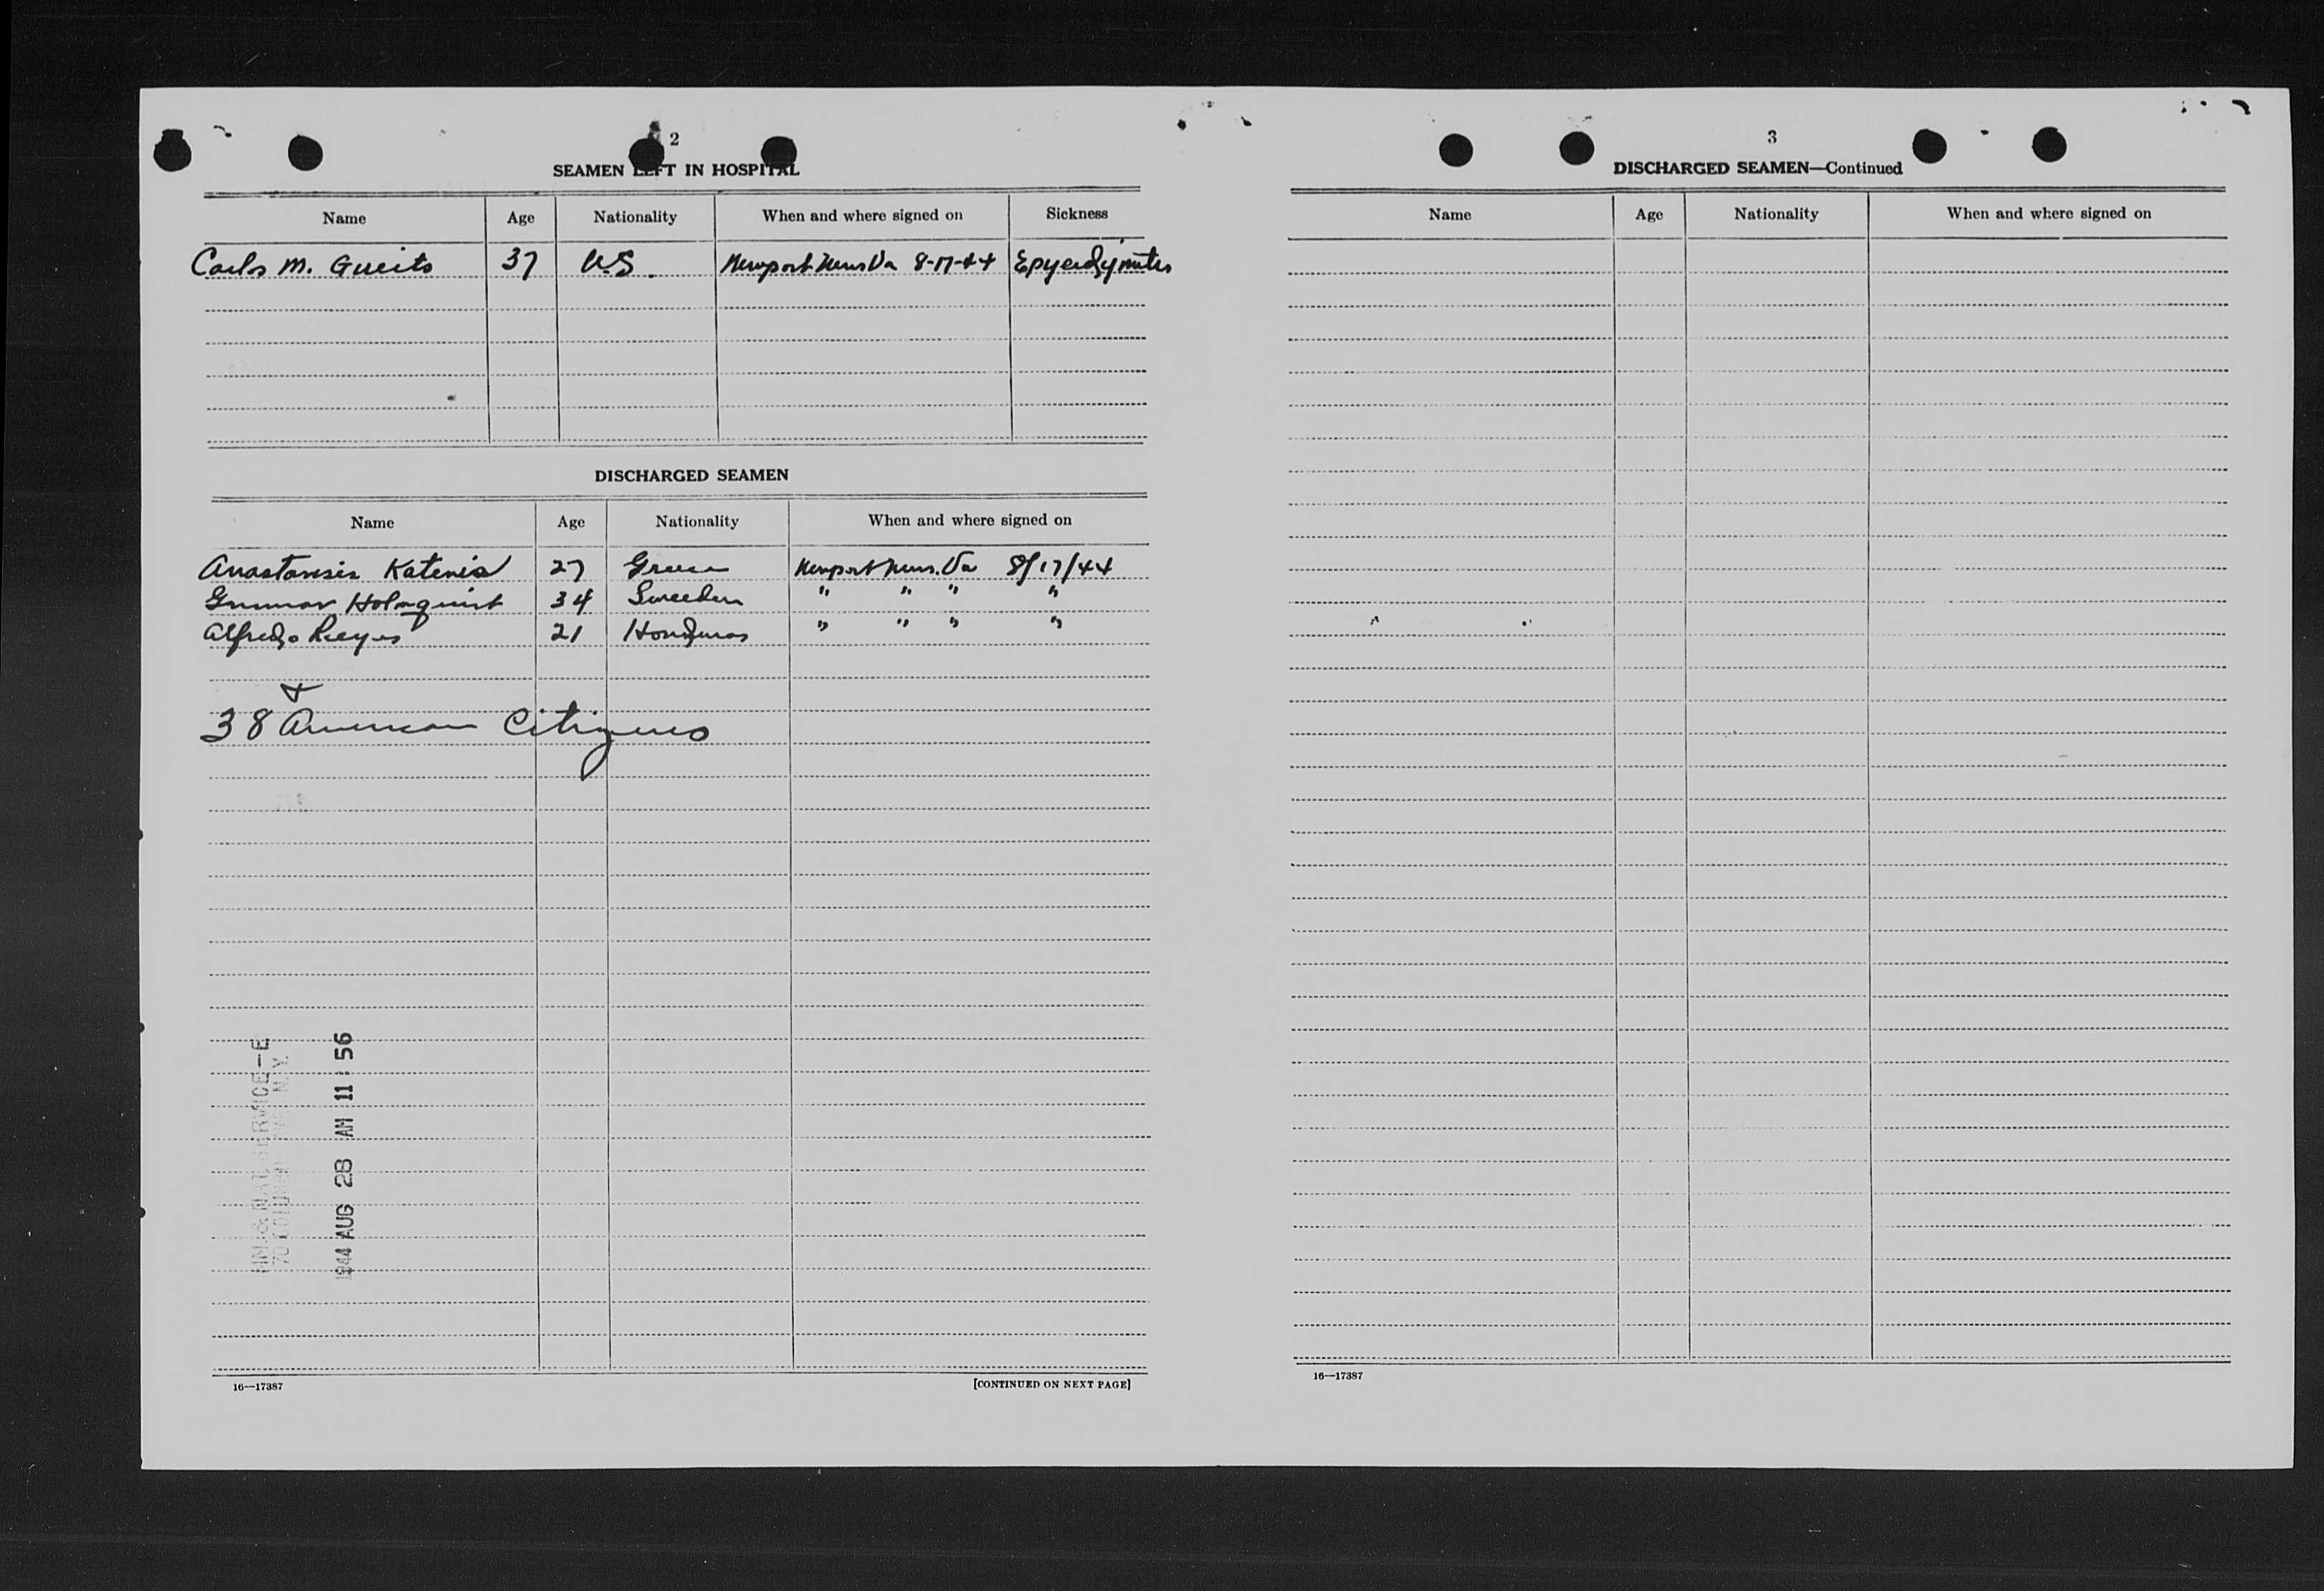 2
SEAMEN LEFT IN HOSPITAL
Name Age Nationality When and where signed on Sickness
Carlos M. Gueits 37 U.S. Newport News Va 8-17-44
DISCHARGED SEAMEN
Name Age Nationality When and where signed on
Katenis 27 Greece Newport News. Va 8/17/44
Gunnar Holmquist 34 Sweeden " " " "
Alfredo Reyes 21 Honduras " " " "
&
38 American Citizens
IMM. & NAT. SERVICE-E
70 COLUMBUS AVE. N.Y.
1944 AUG 28 AM 11 56
16—17387
[CONTINUED ON NEXT PAGE]
3
DISCHARGED SEAMEN—Continued
Name Age Nationality When and where signed on
16—17387